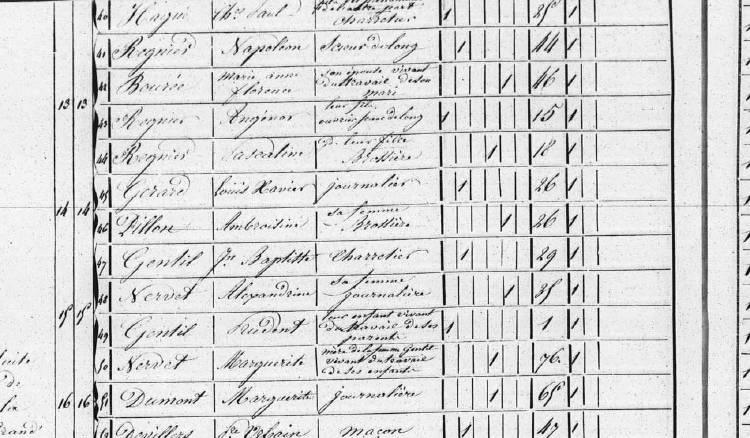 40 Haqui Chles Paul Charretier 1 25
41 Regnier Napoléon Scieur de long 1 44 1
42 Bourée Marie anne Florence son épouse vivant du travail de son mari 1 46 1
13 13 43 Regnier Angénor leur fils ouvrier scieur de long 1 15 1
44 Regnier Pascaline leur fille Brossière 1 18 1
45 Gérard Louis Xavier journalier 1 26 1
14 14 46 Dillon Ambroisine sa femme Brossière 1 26 1
47 Gentil Jn Baptiste Charretier 1 29 1
48 Nervet Alexandrine sa femme journalière 1 35 1
15 15 49 Gentil leur enfant vivant du travail de ses parents 1 1 1
50 Nervet Marguerite mère de la femme Gentil vivant du travail de ses enfants 1 76 1
16 16 51 Dumont Marguerite journalière 1 65 1
52 Urbain maçon 1 47 1
de